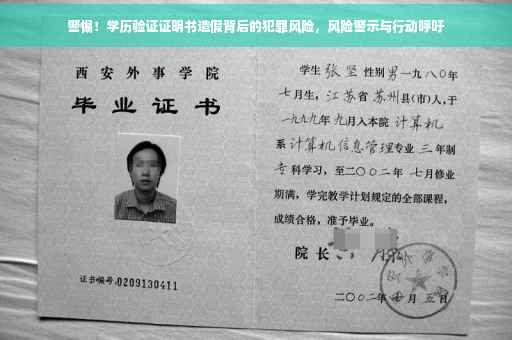 警惕！学历验证证明书造假背后的犯罪风险，风险警示与行动呼吁
西安外事学院
毕业证书
证书编号:0209130411
学生 张坚 性别 男 一九八〇年
七月生，江苏省苏州县(市)人,于
一九九九年九月入本院 计算机
系 计算机信息管理 专业 三 年制
专科学习，至二〇〇二年 七月修业
期满，学完教学计划规定的全部课程，
成绩合格，准予毕业。
院长
二〇〇二年 月五日